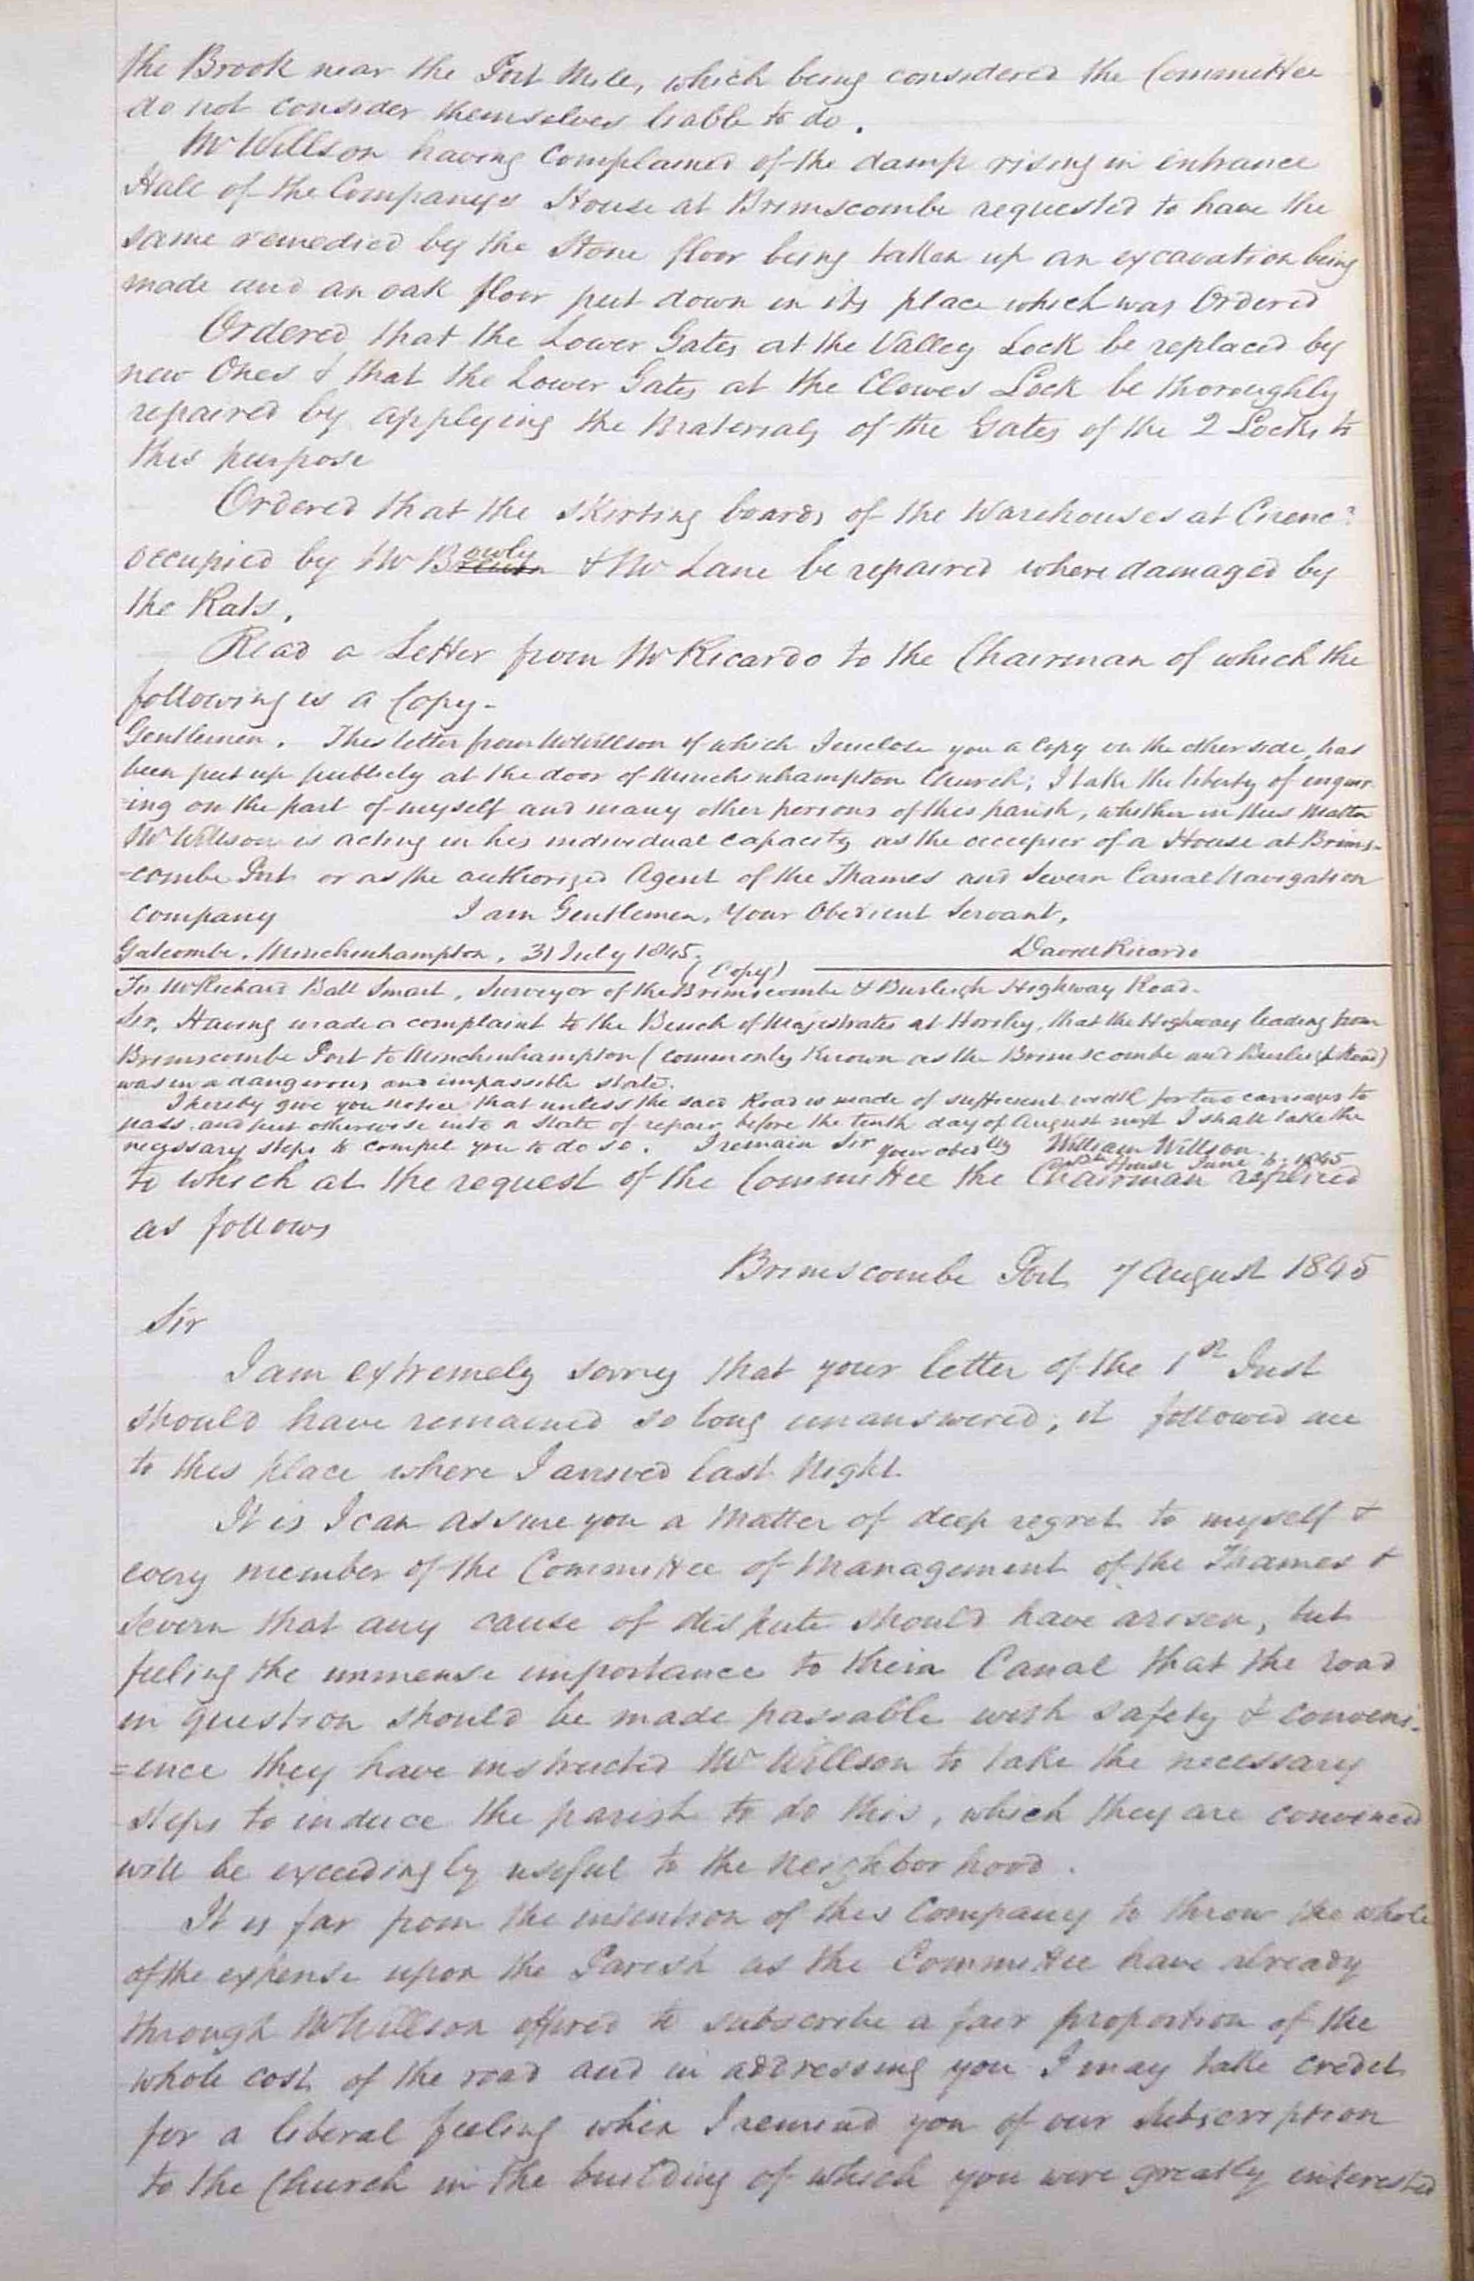 the Brook near the Port Mill, which being considered the Committee
do not consider themselves liable to do.
Mr Willson having complained of the damp rising in entrance
Hall of the Companys House at Brimscombe requested to have the
same remedied by the Stone floor being taken up an excavation being
made and an oak floor put down in its place which was Ordered
Ordered that the Lower Gates at the Valley Lock be replaced by
new Ones & that the Lower Gates at the Clowes Lock be thoroughly
repaired by applying the Materials of the Gates of the 2 Locks to
this purpose
Ordered that the skirting boards of the Warehouses at Cirenr
occupied by Mr Bowly & Mr Lane be repaired where damaged by
the Rats.
Read a Letter from Mr Ricardo to the Chairman of which the
following is a Copy-
Gentlemen. This letter from Mr Willson of which I enclose you a Copy on the other side, has
been put up publicly at the door of Minchinhampton Church; I take the liberty of inquir-
=ing on the part of myself and many other persons of this parish, whether in this Matter
Mr Willson is acting in his individual capacity as the occupier of a House at Brims-
=combe Port or as the authorized Agent of the Thames and Severn Canal Navigation
Company I am Gentlemen, Your Obedient Servant,
Gatcombe. Minchinhampton, 31 July 1845. David Ricardo
(Copy)
To Mr Richard Ball Smart, Surveyor of the Brimscombe & Burleigh Highway Road.
Sir, Having made a complaint to the Bench of Majestrates at Horsley, that the Highway leading from
Brimscombe Port to Minchinhampton (commonly known as the Brimscombe and Burleigh Road)
was in a dangerous and impassible state.
I hereby give you notice that unless the said Road is made of sufficient width for two carriages to
pass and put otherwise into a state of repair before the tenth day of August next I shall take the
necessary steps to compel you to do so. I remain Sir your obedtly William Willson
House June 1845
to which at the request of the Committee the Chairman replied
as follows
Brimscombe Port 7 August 1845
Sir
I am extremely sorry that your letter of the 1st Inst
should have remained so long unanswered; it followed me
to this place where I arrived last Night.
It is I can assure you a Matter of deep regret to myself &
every member of the Committee of Management of the Thames &
Severn that any cause of dispute should have arisen, but
feeling the immense importance to their Canal that the road
in question should be made passable with safety & conveni-
=ence they have instructed Mr Willson to take the necessary
steps to induce the parish to do this, which they are convinced
will be exceedingly useful to the Neighborhood.
It is far from the intention of this Company to throw the whole
of the expense upon the Parish as the Committee have already
through Mr Willson offered to subscribe a fair proportion of the
whole cost of the road and in addressing you I may take credit
for a liberal feeling when I remind you of our Subscription
to the Church in the building of which you were greatly interested